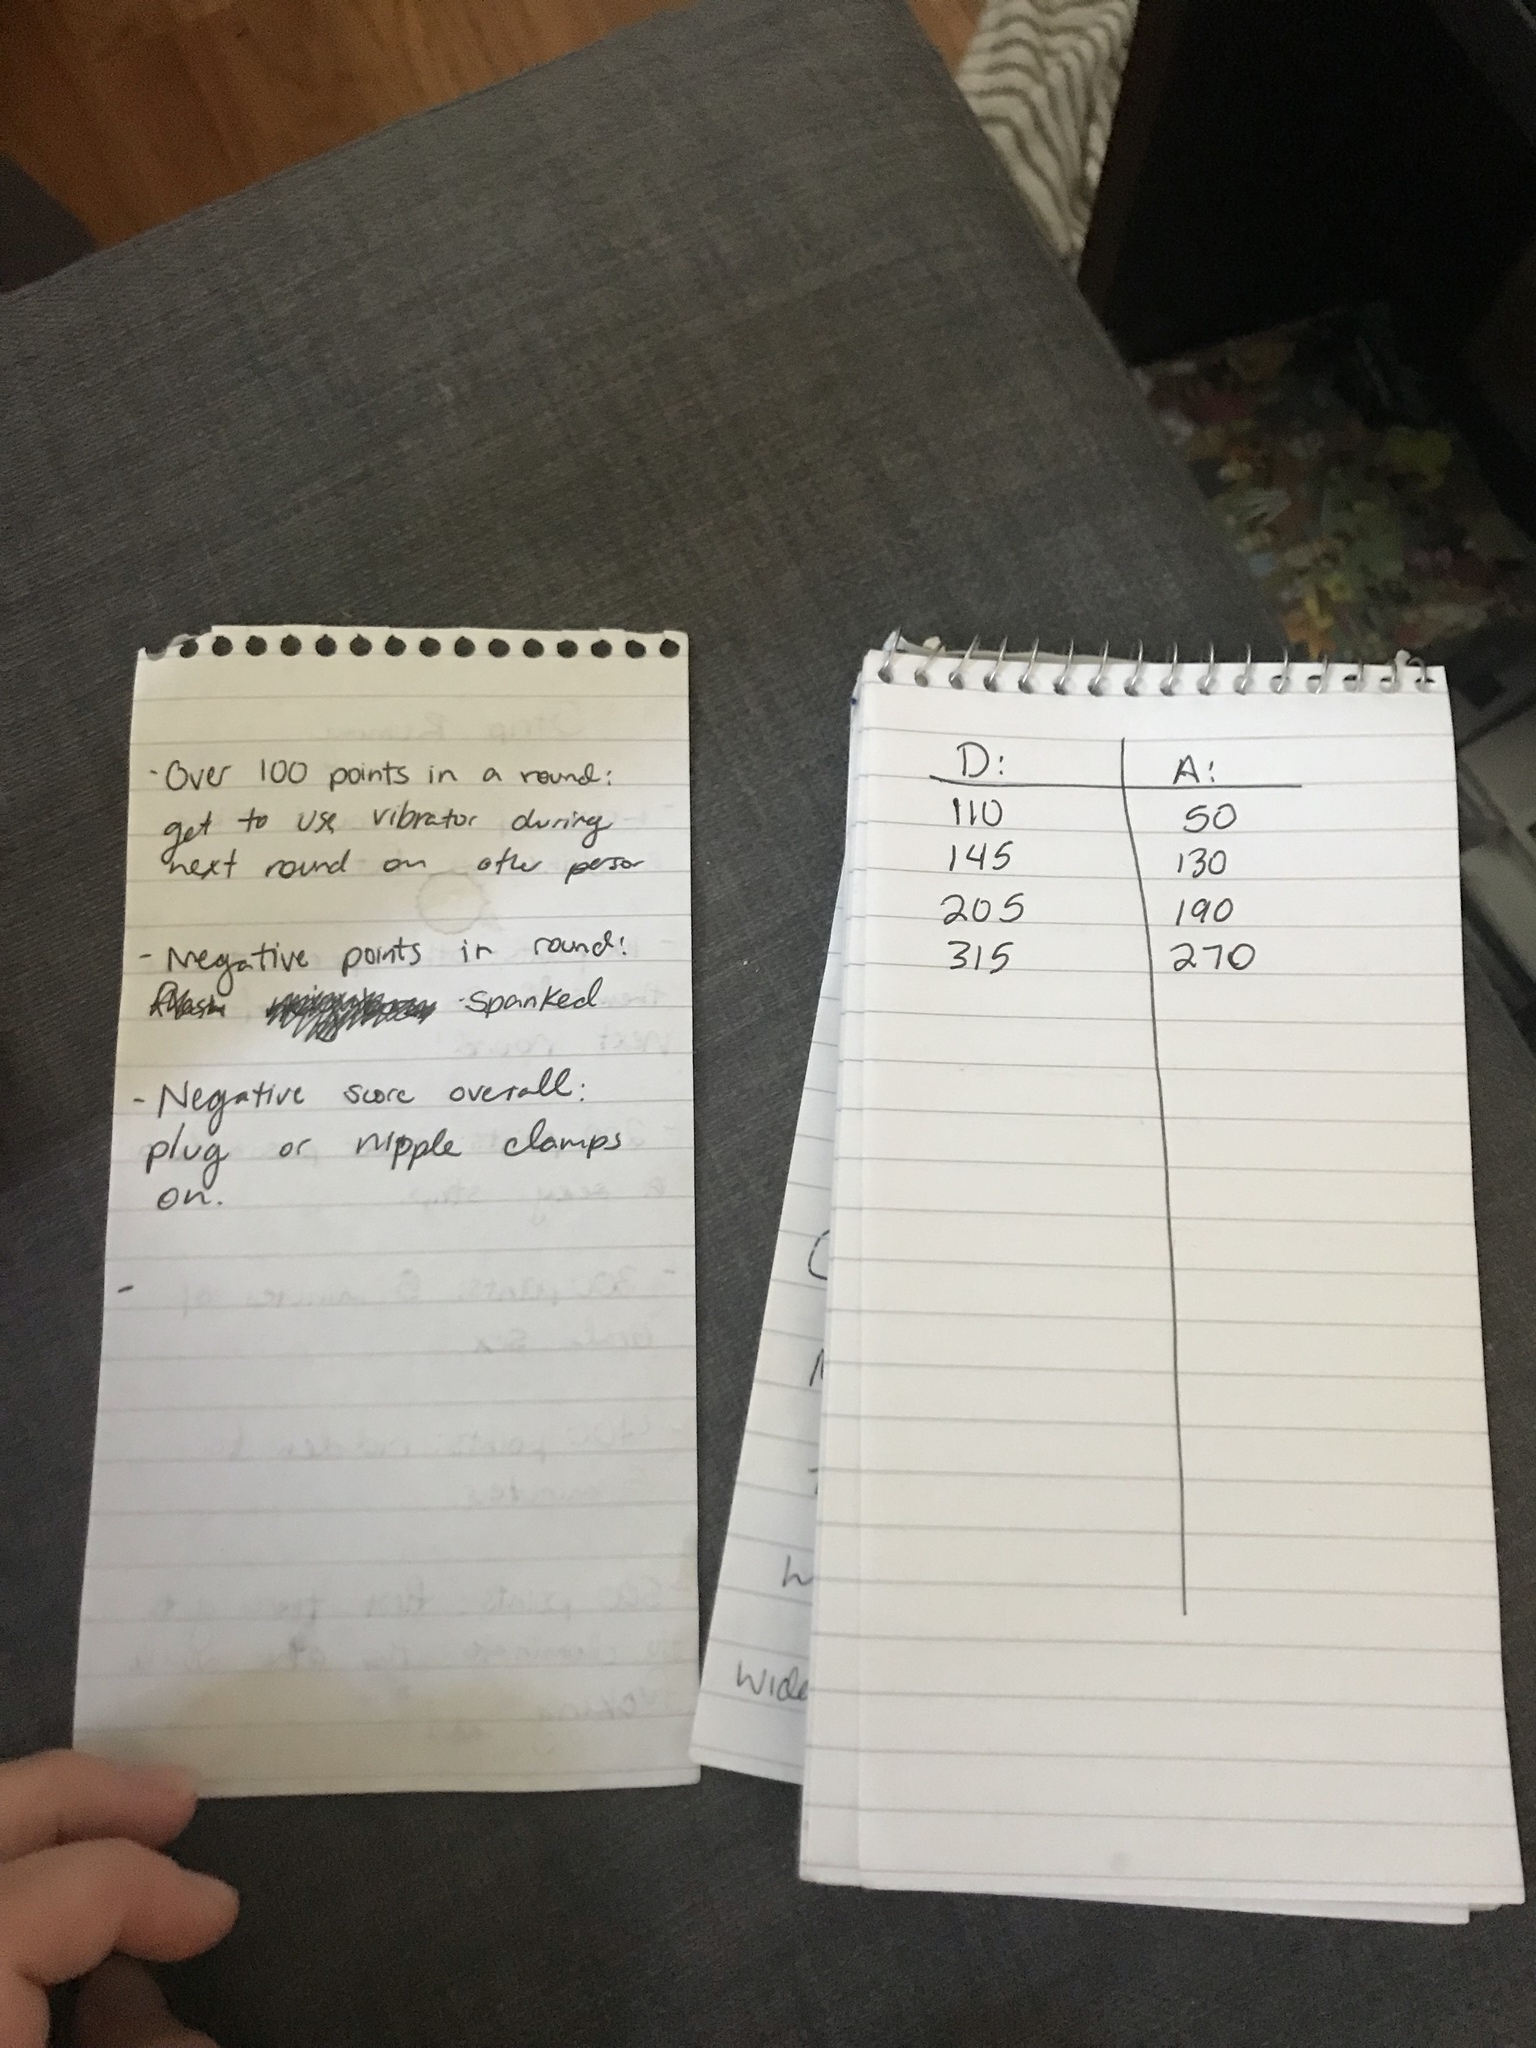 - Over 100 points in a round:
get to use vibrator during
next round on other person
- Negative points in round:
Spanked
- Negative score overall:
plug or nipple clamps
on.
-
D: A:
110 50
145 130
205 190
315 270
wide